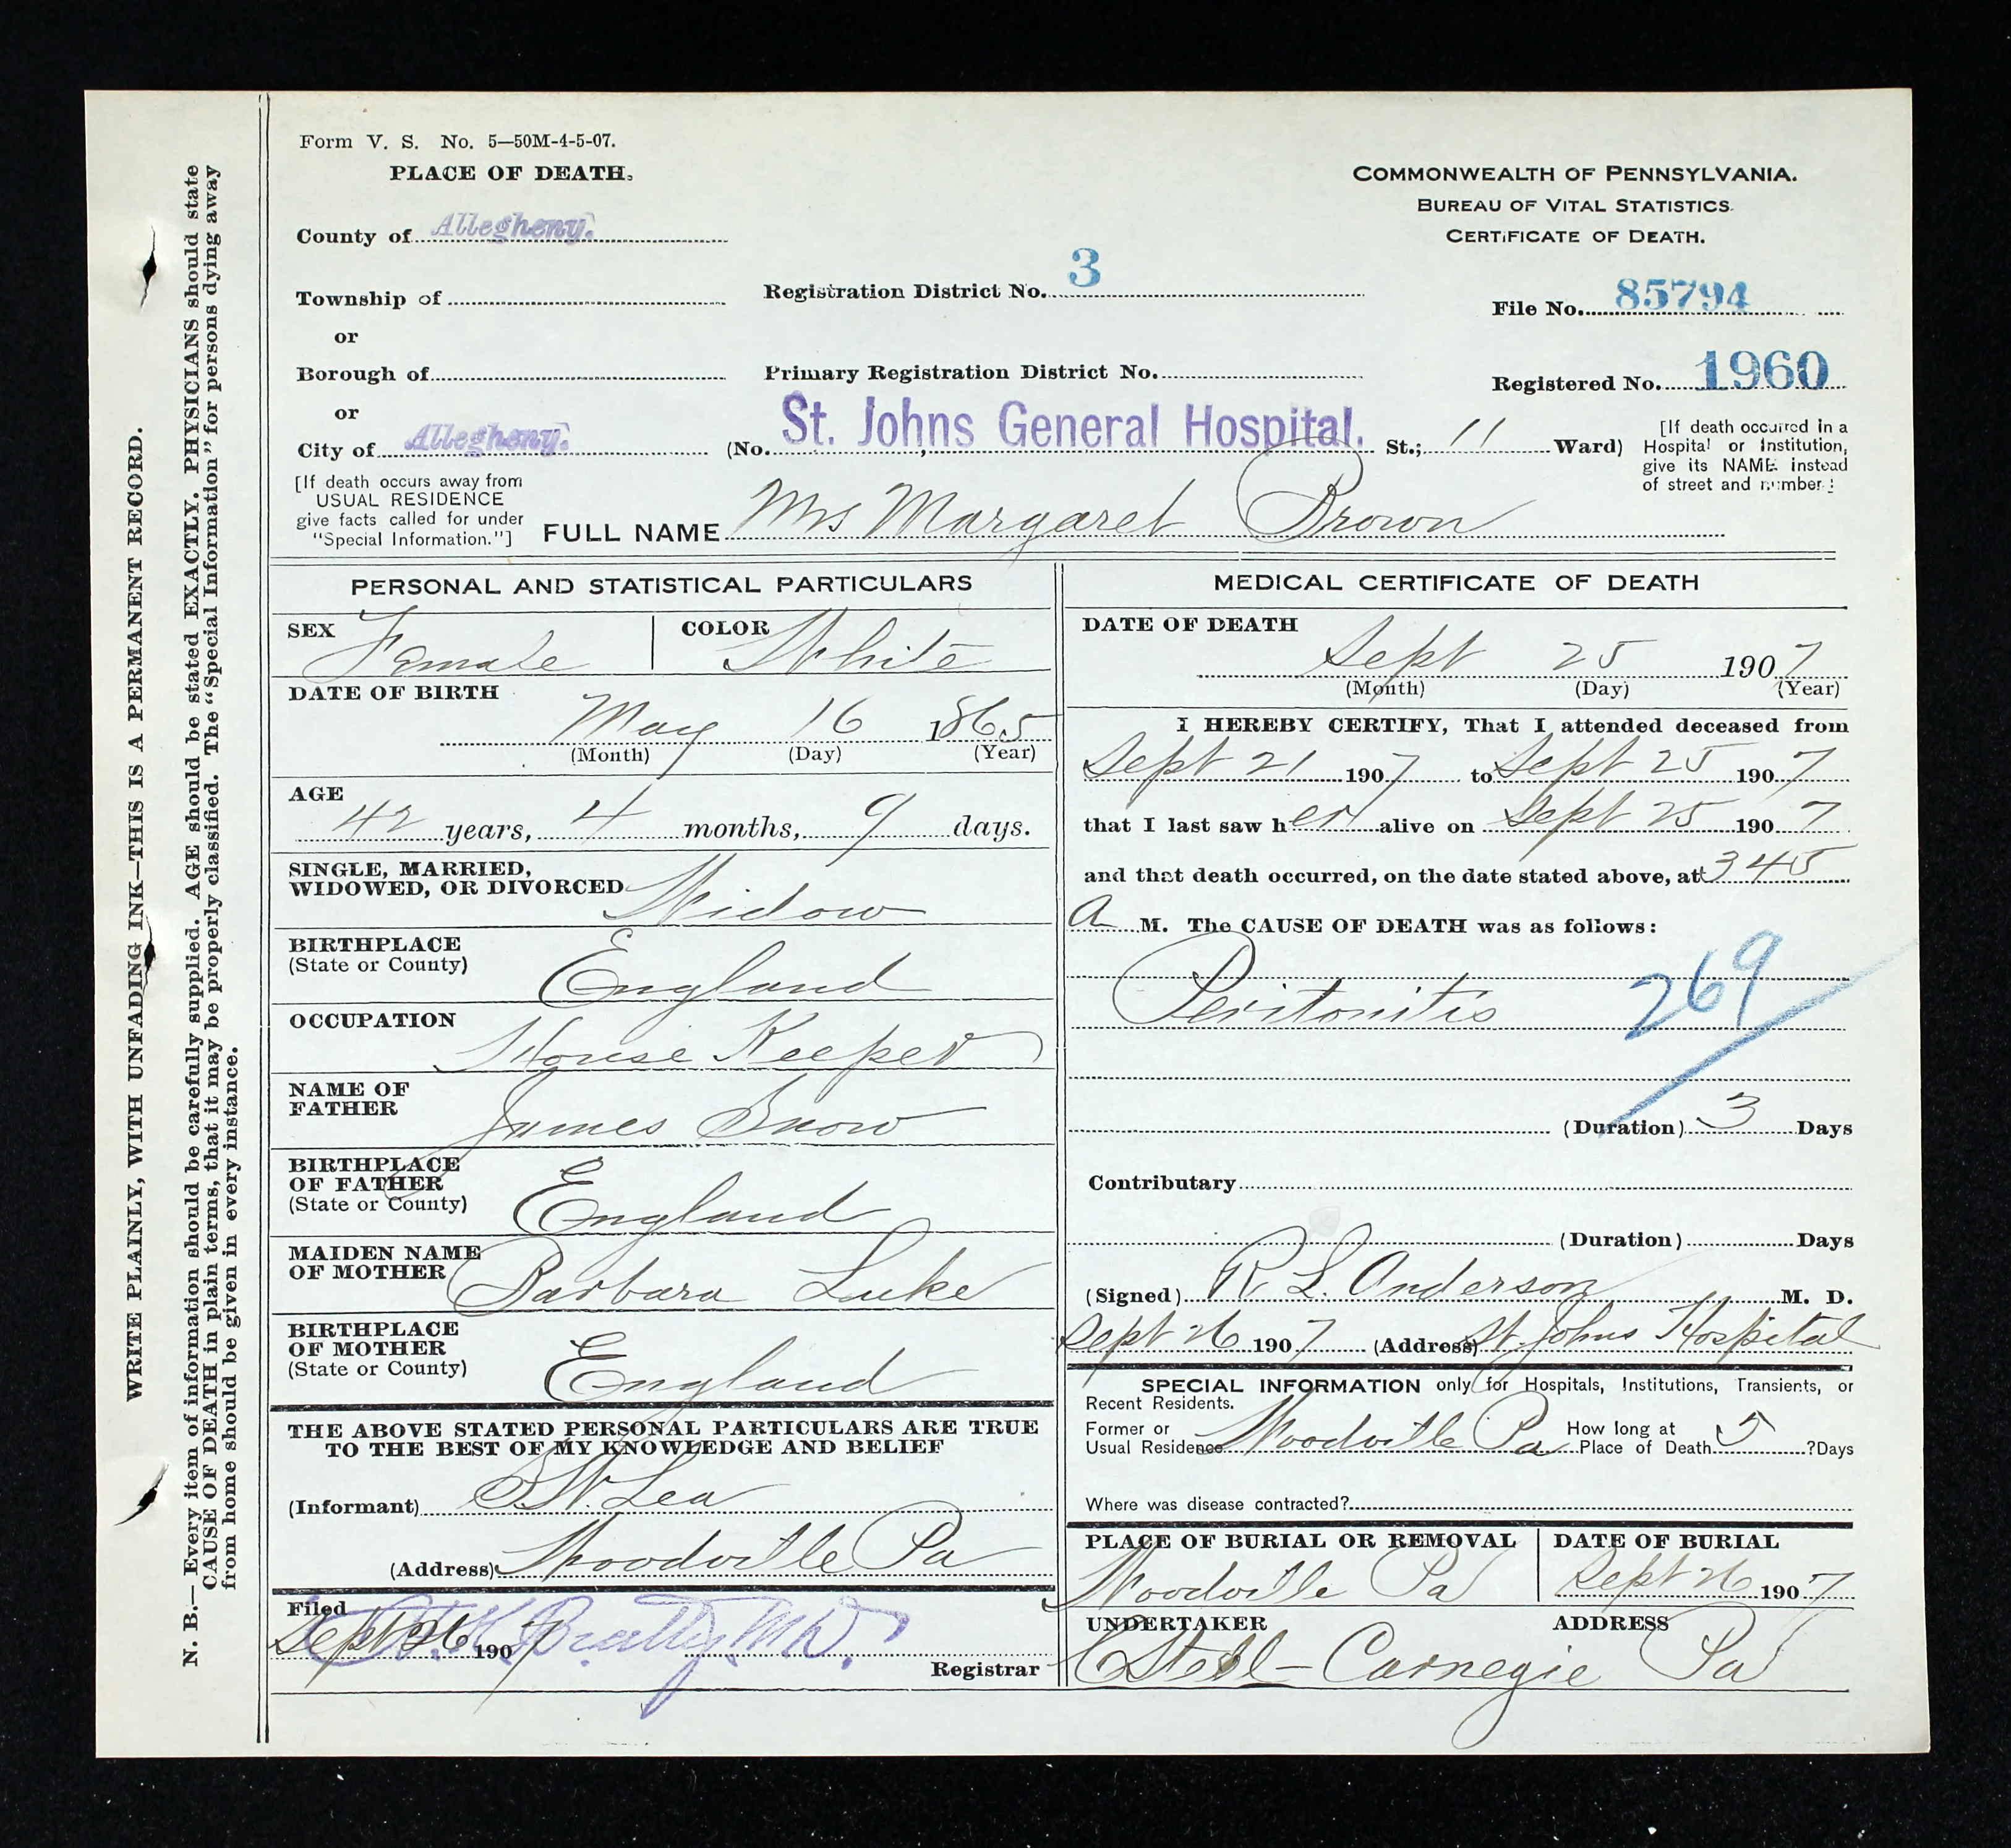 WRITE PLAINLY, WITH UNFADING INK—THIS IS A PERMANENT RECORD.
N. B.—Every item of information should be carefully supplied. AGE should be stated EXACTLY. PHYSICIANS should state
CAUSE OF DEATH in plain terms, that it may be properly classified. The "Special Information" for persons dying away
from home should be given in every instance.
Form V. S. No. 5—50M-4-5-07.
PLACE OF DEATH.
COMMONWEALTH OF PENNSYLVANIA.
BUREAU OF VITAL STATISTICS.
CERTIFICATE OF DEATH.
County of Allegheny.
Township of
or
Borough of
or
City of Allegheny.
Registration District No. 3
File No. 85794
Primary Registration District No.
Registered No. 1960
(No. St. Johns General Hospital. St.; 11 Ward)
[If death occurred in a
Hospital or Institution,
give its NAME instead
of street and number.]
[If death occurs away from
USUAL RESIDENCE
give facts called for under
"Special Information."]
FULL NAME Mrs Margaret Brown
PERSONAL AND STATISTICAL PARTICULARS
SEX Female
COLOR White
DATE OF BIRTH
May 16 1865
(Month) (Day) (Year)
AGE
42 years, 4 months, 9 days.
SINGLE, MARRIED,
WIDOWED, OR DIVORCED Widow
BIRTHPLACE
(State or County) England
OCCUPATION
House Keeper
NAME OF
FATHER James Snow
BIRTHPLACE
OF FATHER
(State or County) England
MAIDEN NAME
OF MOTHER Barbara Luke
BIRTHPLACE
OF MOTHER
(State or County) England
THE ABOVE STATED PERSONAL PARTICULARS ARE TRUE
TO THE BEST OF MY KNOWLEDGE AND BELIEF
(Informant) Lea
(Address) Woodville Pa
Filed
Sept 26 1907 Beatty M.D.
Registrar
MEDICAL CERTIFICATE OF DEATH
DATE OF DEATH
Sept 25 1907
(Month) (Day) (Year)
I HEREBY CERTIFY, That I attended deceased from
Sept 21 1907 to Sept 25 1907
that I last saw her alive on Sept 25 1907
and that death occurred, on the date stated above, at 345
a M. The CAUSE OF DEATH was as follows:
Peritonitis 269
(Duration) 3 Days
Contributary
(Duration) Days
(Signed) R L. Anderson M. D.
Sept 26 1907 (Address) St Johns Hospital
SPECIAL INFORMATION only for Hospitals, Institutions, Transients, or
Recent Residents.
Former or
Usual Residence Woodville Pa
How long at
Place of Death 5 ?Days
Where was disease contracted?
PLACE OF BURIAL OR REMOVAL
Woodville Pa
DATE OF BURIAL
Sept 26 1907
UNDERTAKER
ADDRESS
Carnegie Pa